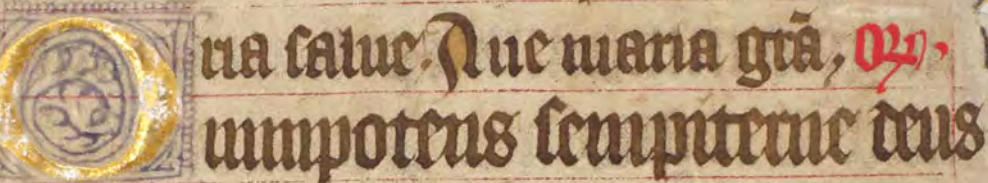 ria salue. Aue maria grã, Or̃.
Omnipotens sempiterne deus